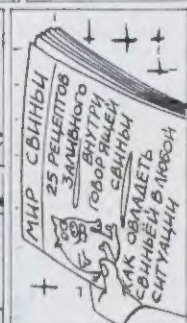 МИР СВИНЬИ
25 РЕЦЕПТОВ
ЗАЛИВНОГО
ВНУТРИ
ГОВОРЯЩЕЙ
СВИНЬИ
КАК ОВЛАДЕТЬ
СВИНЬЁЙ В ЛЮБОЙ
СИТУАЦИИ